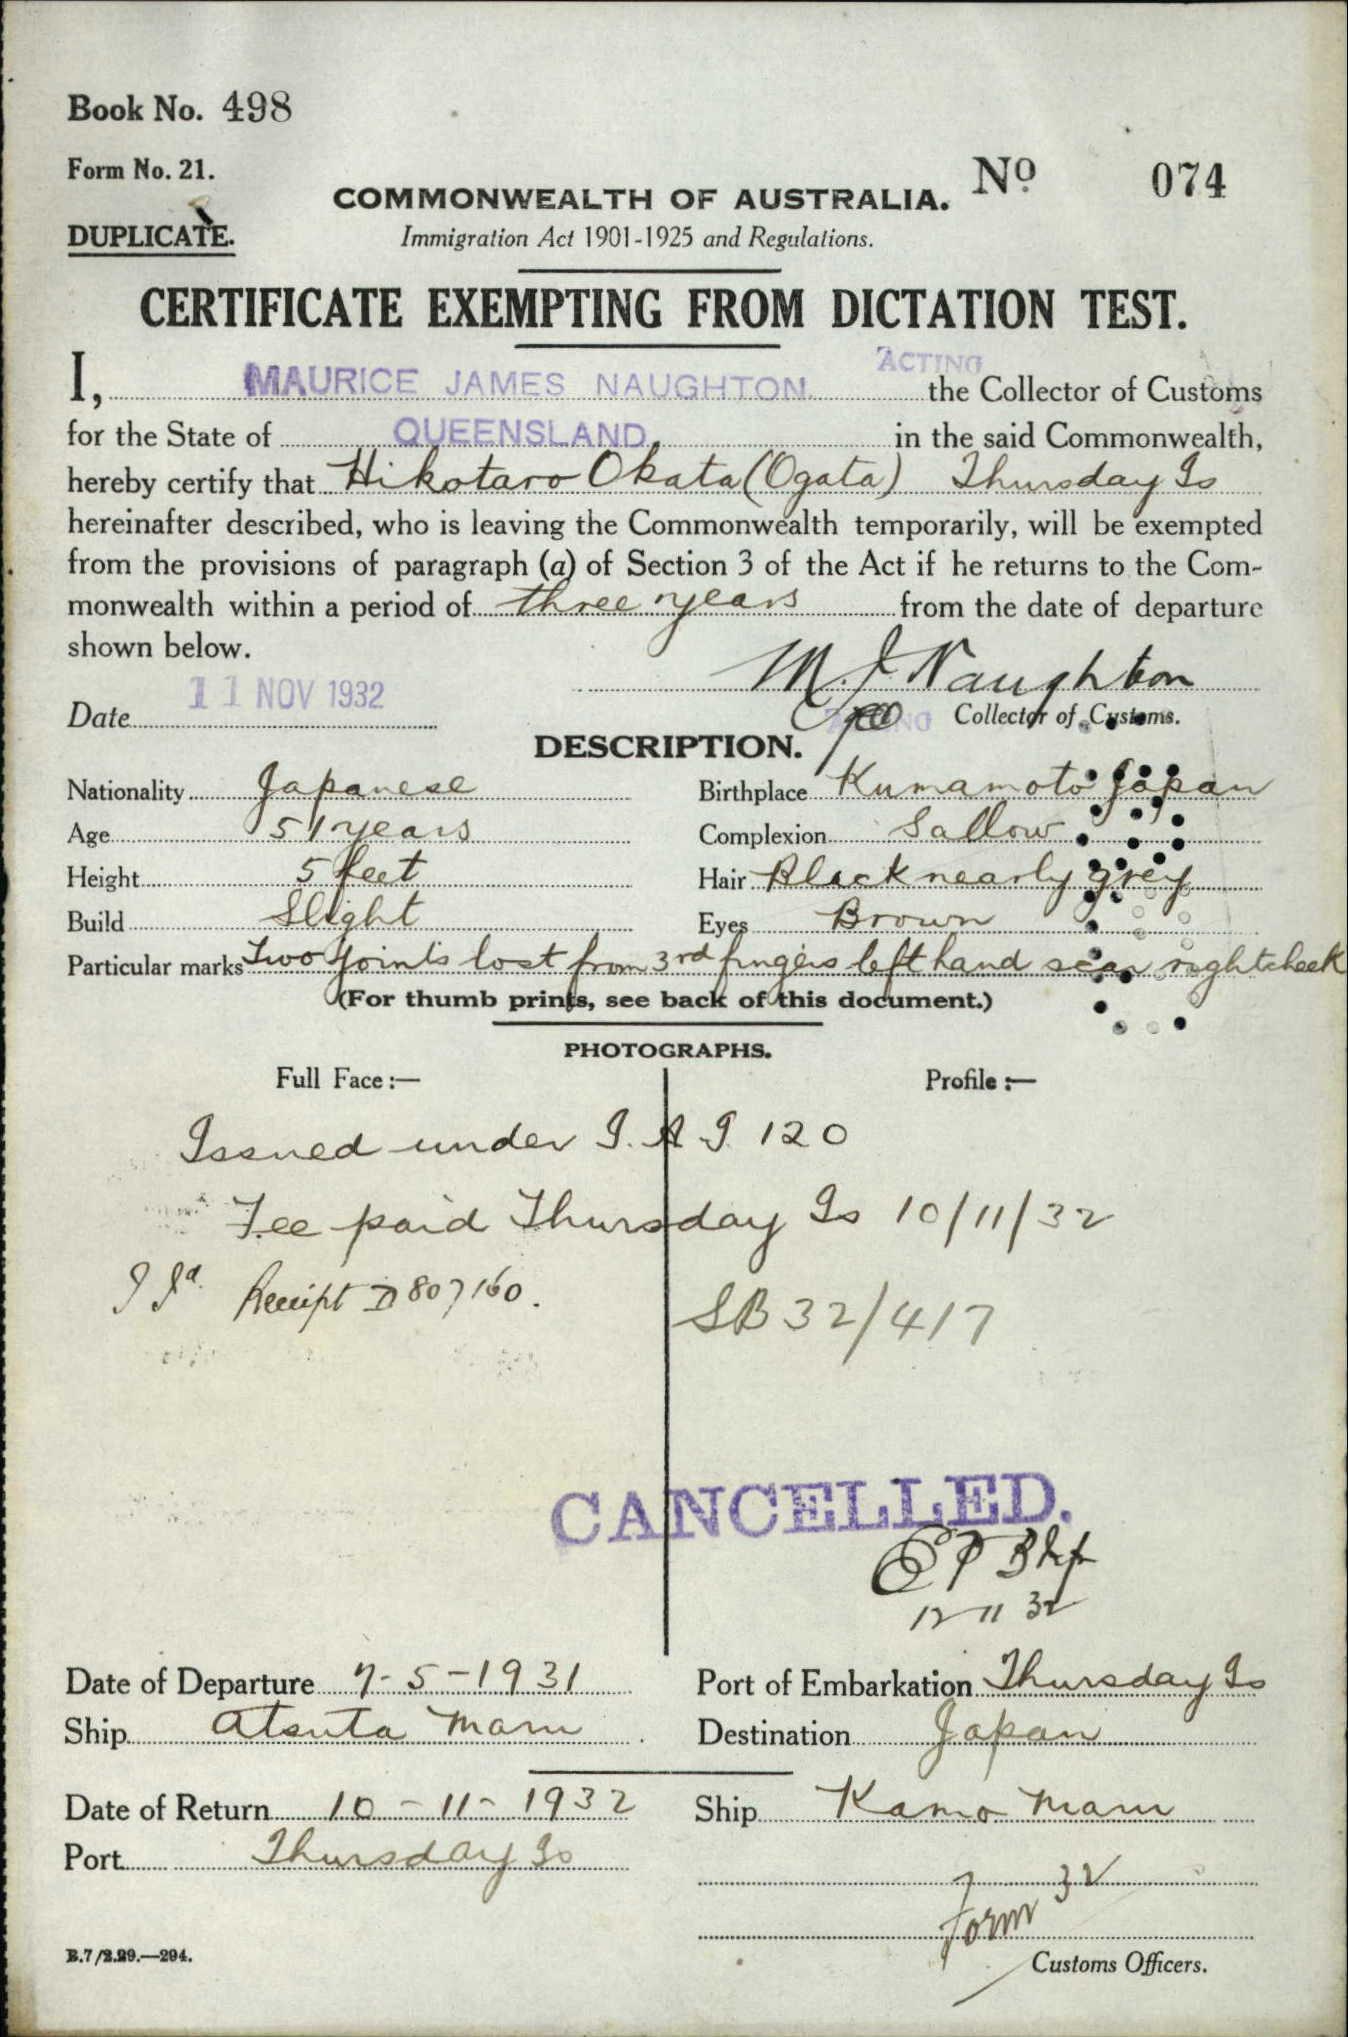 Book No. 498
Form No. 21.
No 074
COMMONWEALTH OF AUSTRALIA.
DUPLICATE.
Immigration Act 1901-1925 and Regulations.
CERTIFICATE EXEMPTING FROM DICTATION TEST.
ACTING
I, MAURICE JAMES NAUGHTON the Collector of Customs
for the State of QUEENSLAND, in the said Commonwealth,
hereby certify that Hikotaro Okata (Ogata) Thursday Is
hereinafter described, who is leaving the Commonwealth temporarily, will be exempted
from the provisions of paragraph (a) of Section 3 of the Act if he returns to the Com-
monwealth within a period of three years from the date of departure
shown below.
M. J Naughton
11 NOV 1932
Date
ACTING Collector of Customs.
DESCRIPTION.
Nationality Japanese Birthplace Kumamoto Japan
Age 51 years Complexion Sallow
Height 5 feet Hair Black nearly grey
Build Slight Eyes Brown
Particular marks Two joints lost from 3rd fingers left hand scar right cheek
(For thumb prints, see back of this document.)
PHOTOGRAPHS.
Full Face :— Profile :—
Issued under I. A I. 120
Fee paid Thursday Is 10/11/32
Receipt D 807160.
SB 32/417
CANCELLED.
12 11 32
Date of Departure 7-5-1931 Port of Embarkation Thursday Is
Ship Atsuta Maru Destination Japan
Date of Return 10-11-1932 Ship Kamo Maru
Port Thursday Is
Form 32
B.7/2.29.—294.
Customs Officers.